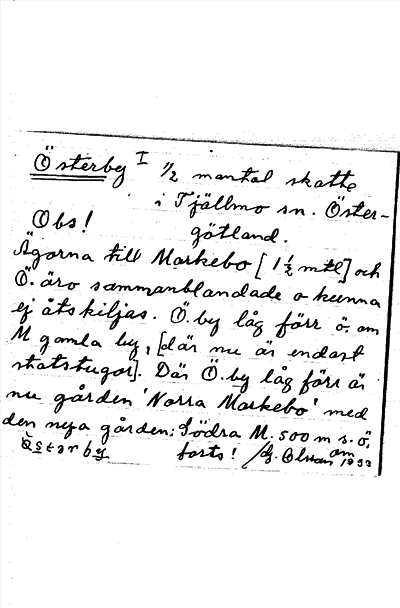 Österby I 1/2 mantal skatte
i Tjällmo sn. Öster-
Obs! götland.
Ägorna till Markebo [1 1/2 mtl] och
Ö. äro sammanblandade o kunna
ej åtskiljas. Ö.by låg förr ö. om
M gamla by, [där nu är endast
statstugor]. Där Ö.by låg förr är
nu gården 'Norra Markebo' med
den nya gården: Södra M. 500 m s.ö.
om
Österby forts! Olsson 1933